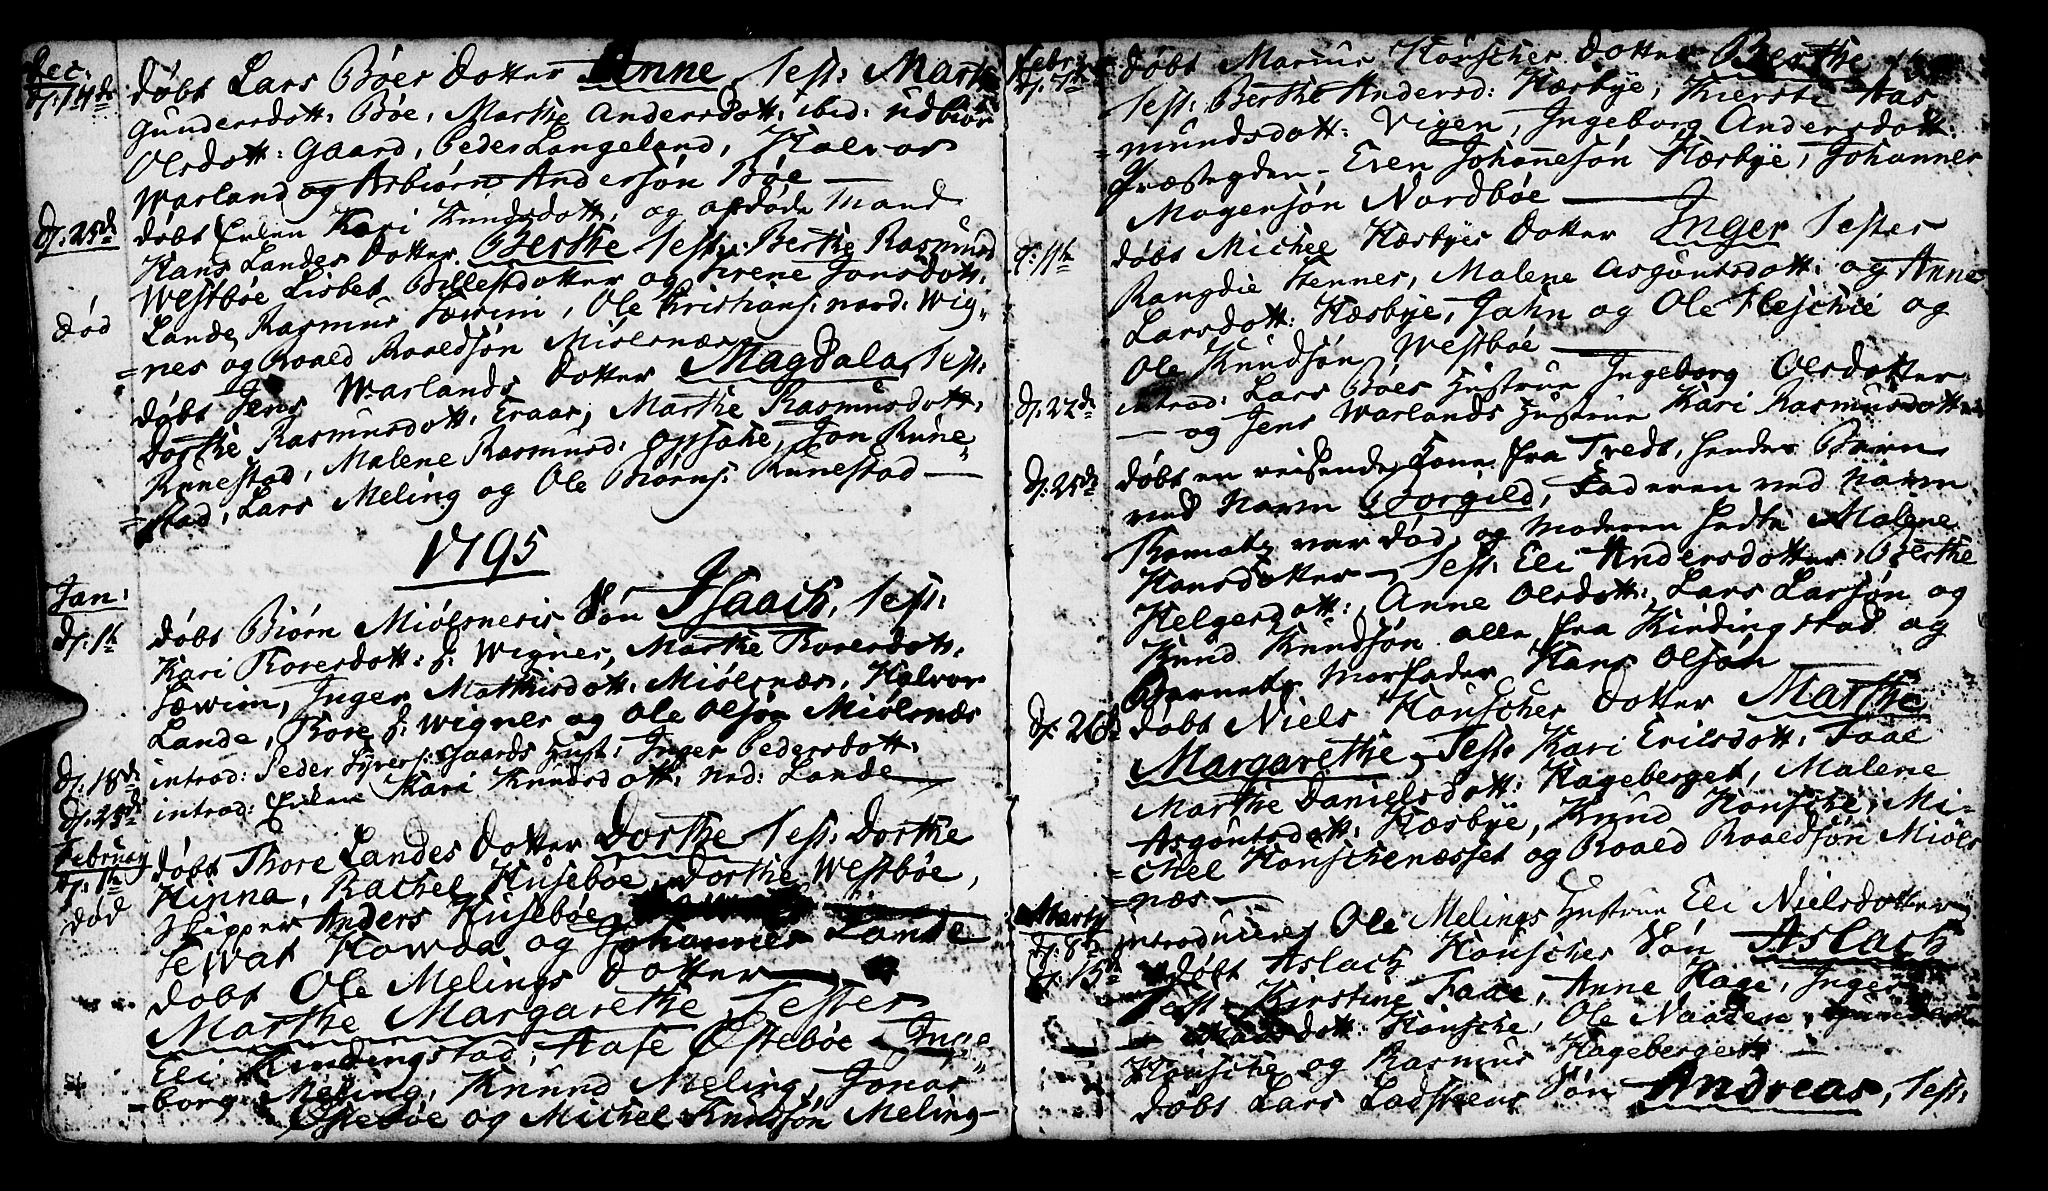 Dec:
d: 14de døbt Lars Bøes Dotter Anne, Test: Marthe
Gundersdott: Bøe, Marthe Andersdott: ibid: Udbiør
Olsdott: Gaard, Peder Langeland, Halvor
Warland og Asbiørn Andersøn Bøe —
d: 25de døbt Enken Kari Knudsdott, og afdøde Mand
Hans Landes Dotter Berthe Test: Berthe Rasmusd
Westbøe Lisbet Billestdotter og Sirene Jonsdott:
død Lande, Rasmus Sæwim, Ole Kristians: nord: Wig-
=nes og Roald Roaldsøn Miølsnæs
døbt Jens Warlands Dotter Magdala, Test:
Dorthe Rasmusdott: Eraas, Marthe Rasmusdott:
Runestad, Malene Rasmusd: Opsahe, Jon Rune-
=stad, Lars Meling og Ole Biørns: Runestad —
1795
Jan:
d: 1te døbt Biørn Miølsnesis Søn Isaach, Test:
Kari Toresdott: f: Wignes, Marthe Toresdott:
Sæwim, Inger Mathisdott: Miølsnæs, Halvor
Lande, Tore f: Wignes og Ole Olsøn Miølsnæs
d: 18de introd: Peder Syvers: Gaards Hust: Inger Pedersdott:
d: 25de introd: Enken Kari Knudsdott: nod: Lande —
Februar
d: 1te døbt Thore Landes Dotter Dorthe Test: Dorthe
død Hinna, Rachel Husebøe, Dorthe Westbøe,
Skipper Anders Husebøe
Sewat Howda og Johannes Lande
døbt Ole Melings Dotter
Marthe Margarethe, Tester
Eli Kindingstad, Aase Østebøe Inge-
=borg Meling, Knud Meling, Jonas
Østebøe og Michel Knudsøn Meling —
Februar
d: 7de døbt Marcus Houskes Dotter Berthe
Test: Berthe Andersd: Hæsbye, Kierste Aas
=mundsdott: Vigen, Ingeborg Andersdott:
Præstegden — Even Johannesøn Hæsbye, Johannes
Mogensøn Nordbøe —
d: 11te døbt Michel Hæsbyes Dotter Inger Tester
Rangdie Hennes, Malene Asgoutsdott: og Anne
Larsdott: Hæsbye, Jahn og Ole Fleschie og
Ole Knudsøn Westbøe —
d: 22de introd: Lars Bøes Hustrue Ingeborg Olsdotter
— og Jens Warlands Hustrue Kari Rasmusdott:
d: 25de døbt en reisende Kone fra Tredt, hendes Barn
ved Navn Torgild, Faderen ved Navn
Tomas var død og Moderen hedte Malene
Hansdotter — Test: Eli Andersdotter, Berthe
Helgesdott: Anne Olsdott: Lars Larsøn og
Knud Knudsøn alle fra Kindingstad og
Barnets Morfader Hans Olsøn —
d: 26de døbt Niels Houskes Dotter Marthe
Margarethe, Test: Kari Erilsdott: Faae
Marthe Danielsdott: Hageberget, Malene
Asgoutsdott: Hæsbye, Knud Houske, Mi-
=chel Houskenæsset og Roald Roaldsøn Miøls
=næs —
Marty
d: 8de introduceret Ole Melings Hustrue Eli Nielsdotter
d: 15de døbt Aslach Houskes Søn Aslach
Test: Kirstine Faae, Anne Hage, Inger
dott: Houske, Ole Naaden,
Houske og Rasmus Hageberget —
døbt Lars Ladstens Søn Andreas, Test: